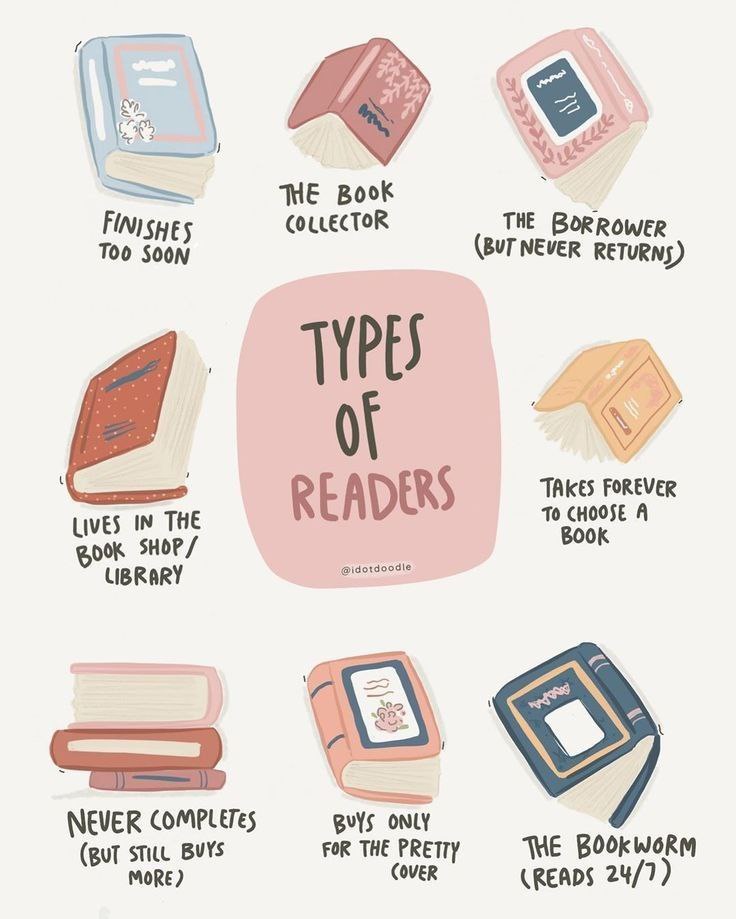 FINISHES
TOO SOON
THE BOOK
COLLECTOR
THE BORROWER
(BUT NEVER RETURNS)
TYPES
OF
READERS
@idotdoodle
LIVES IN THE
BOOK SHOP/
LIBRARY
TAKES FOREVER
TO CHOOSE A
BOOK
NEVER COMPLETES
(BUT STILL BUYS
MORE)
BUYS ONLY
FOR THE PRETTY
COVER
THE BOOKWORM
(READS 24/7)